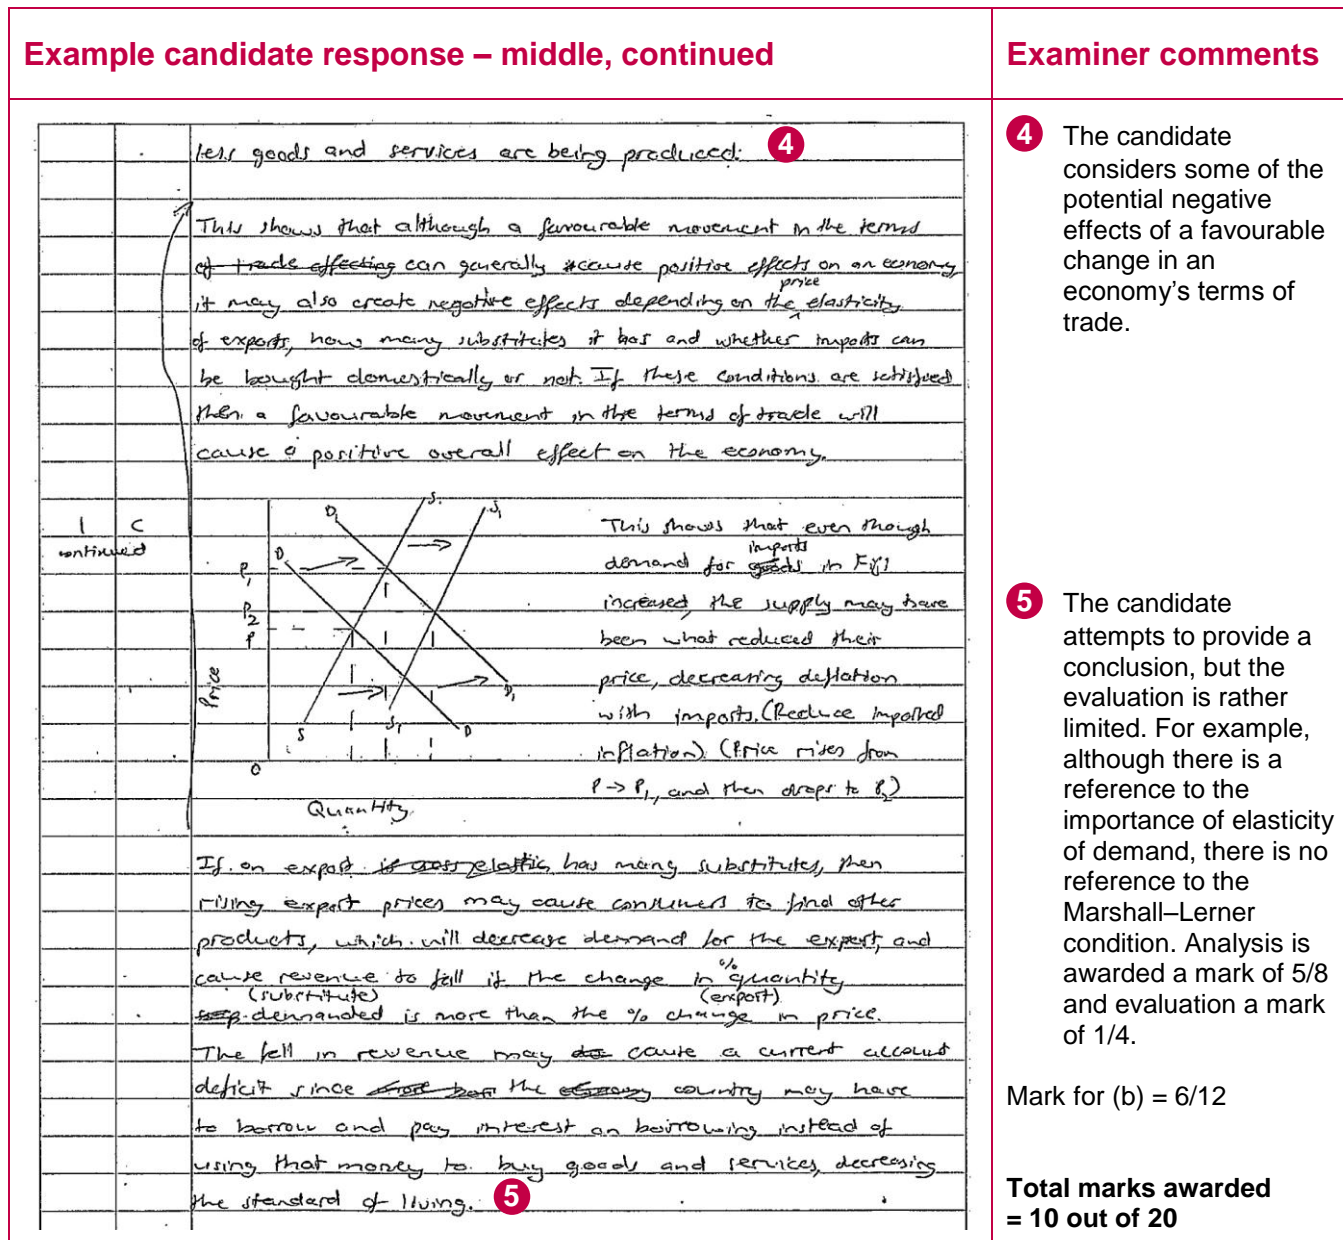 Example candidate response – middle, continued
Examiner comments
less goods and services are being produced. 4
This shows that although a favourable movement in the terms
of trade affecting can generally cause positive effects on an economy
it may also create negative effects depending on the price elasticity
of exports, how many substitutes it has and whether imports can
be bought domestically or not. If these conditions are satisfied
then a favourable movement in the terms of trade will
cause a positive overall effect on the economy.
1 C
continued
D1
S
S1
D
P1
P2
P
Price
S
S1
D
D1
O
Quantity
This shows that even though
demand for goods imports in Fig1
increased, the supply may have
been what reduced their
price, decreasing deflation
with imports. (Reduce imported
inflation) (Price rises from
P → P1, and then drops to P2)
If an export is cross elastic has many substitutes, then
rising export prices may cause consumers to find other
products, which will decrease demand for the export, and
cause revenue to fall if the change in % quantity
(substitute) (export)
demanded is more than the % change in price.
The fall in revenue may cause a current account
deficit since the economy country may have
to borrow and pay interest on borrowing instead of
using that money to buy goods and services, decreasing
the standard of living. 5
4 The candidate
considers some of the
potential negative
effects of a favourable
change in an
economy’s terms of
trade.
5 The candidate
attempts to provide a
conclusion, but the
evaluation is rather
limited. For example,
although there is a
reference to the
importance of elasticity
of demand, there is no
reference to the
Marshall–Lerner
condition. Analysis is
awarded a mark of 5/8
and evaluation a mark
of 1/4.
Mark for (b) = 6/12
Total marks awarded
= 10 out of 20